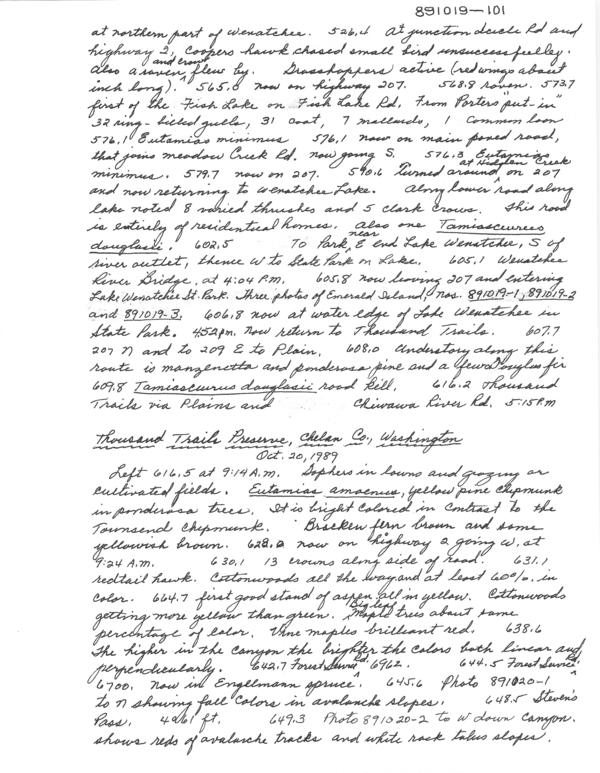 891019-101
at northern part of Wenatchee. 526.4 At junction Leicle Rd and
highway 2, Coopers hawk chased small bird unsuccessfulley.
and crow
Also a raven, flew by. Grasshoppers active (red wings about
inch long). 565.0 now on highway 207. 568.8 raven. 573.7
first of the Fish Lake on Fish Lake Rd. From Porters "put-in"
32 ring-billed gulls, 31 coot, 7 mallards, 1 common loon
576.1 Eutamias minimus 576.1 now on main paved road,
that joins meadow Creek Rd. now going S. 576.3 Eutamias
at Hidden Creek
minimus. 579.7 now on 207. 590.6 Turned around on 207
and now returning to Wenatchee Lake. Along lower road along
lake noted 8 varied thrushes and 5 clark crows. This road
is entirely of residential homes. Also one Tamiasceureus
near
douglasii. 602.5 To Park, E end Lake Wenatchee, S of
river outlet, thence W to State Park on Lake. 605.1 Wenatchee
River Bridge, at 4:04 P.M. 605.8 now leaving 207 and entering
Lake Wenatchee St. Park. Three photos of Emerald Island, nos. 891019-1, 891019-2
and 891019-3. 606.8 now at water edge of Lake Wenatchee in
State Park. 4:52 pm. Now return to Thousand Trails. 607.7
207 N and to 209 E to Plain. 608.0 Understory along this
route is manzenetta and ponderosa pine and a few Douglas fir
609.8 Tamiasceurus douglasii road kill. 616.2 Thousand
Trails via Plains and Chiwawa River Rd. 5:15 PM
Thousand Trails Preserve, Chelan Co., Washington
Oct. 20, 1989
Left 616.5 at 9:14 A.M. Gophers in lawns and grazing or
cultivated fields. Eutamias amoenus, yellow pine chipmunk
in ponderosa trees. It is bright colored in contrast to the
Townsend chipmunk. Bracken fern brown and some
yellowish brown. 628.2 now on highway 2 going W. at
9:24 A.M. 630.1 13 crowns along side of road. 631.1
redtail hawk. Cottonwoods all the way and at least 60% in
color. 664.7 first good stand of aspen all in yellow. Cottonwoods
Big leaf
getting more yellow than green. Maple trees about same
percentage of color. Vine maples brilliant red. 638.6
The higher in the canyon the brighter the colors both linear and
perpendicularly. 642.7 Forest Service Rd 6962. 644.5 Forest Service Rd
6700. Now in Engelmann spruce. 645.6 Photo 891020-1
to N showing fall colors in avalanche slopes. 648.5 Steven's
Pass. 4061 ft. 649.3 Photo 891020-2 to W down canyon.
shows reds of avalanche tracks and white rock talus slopes.